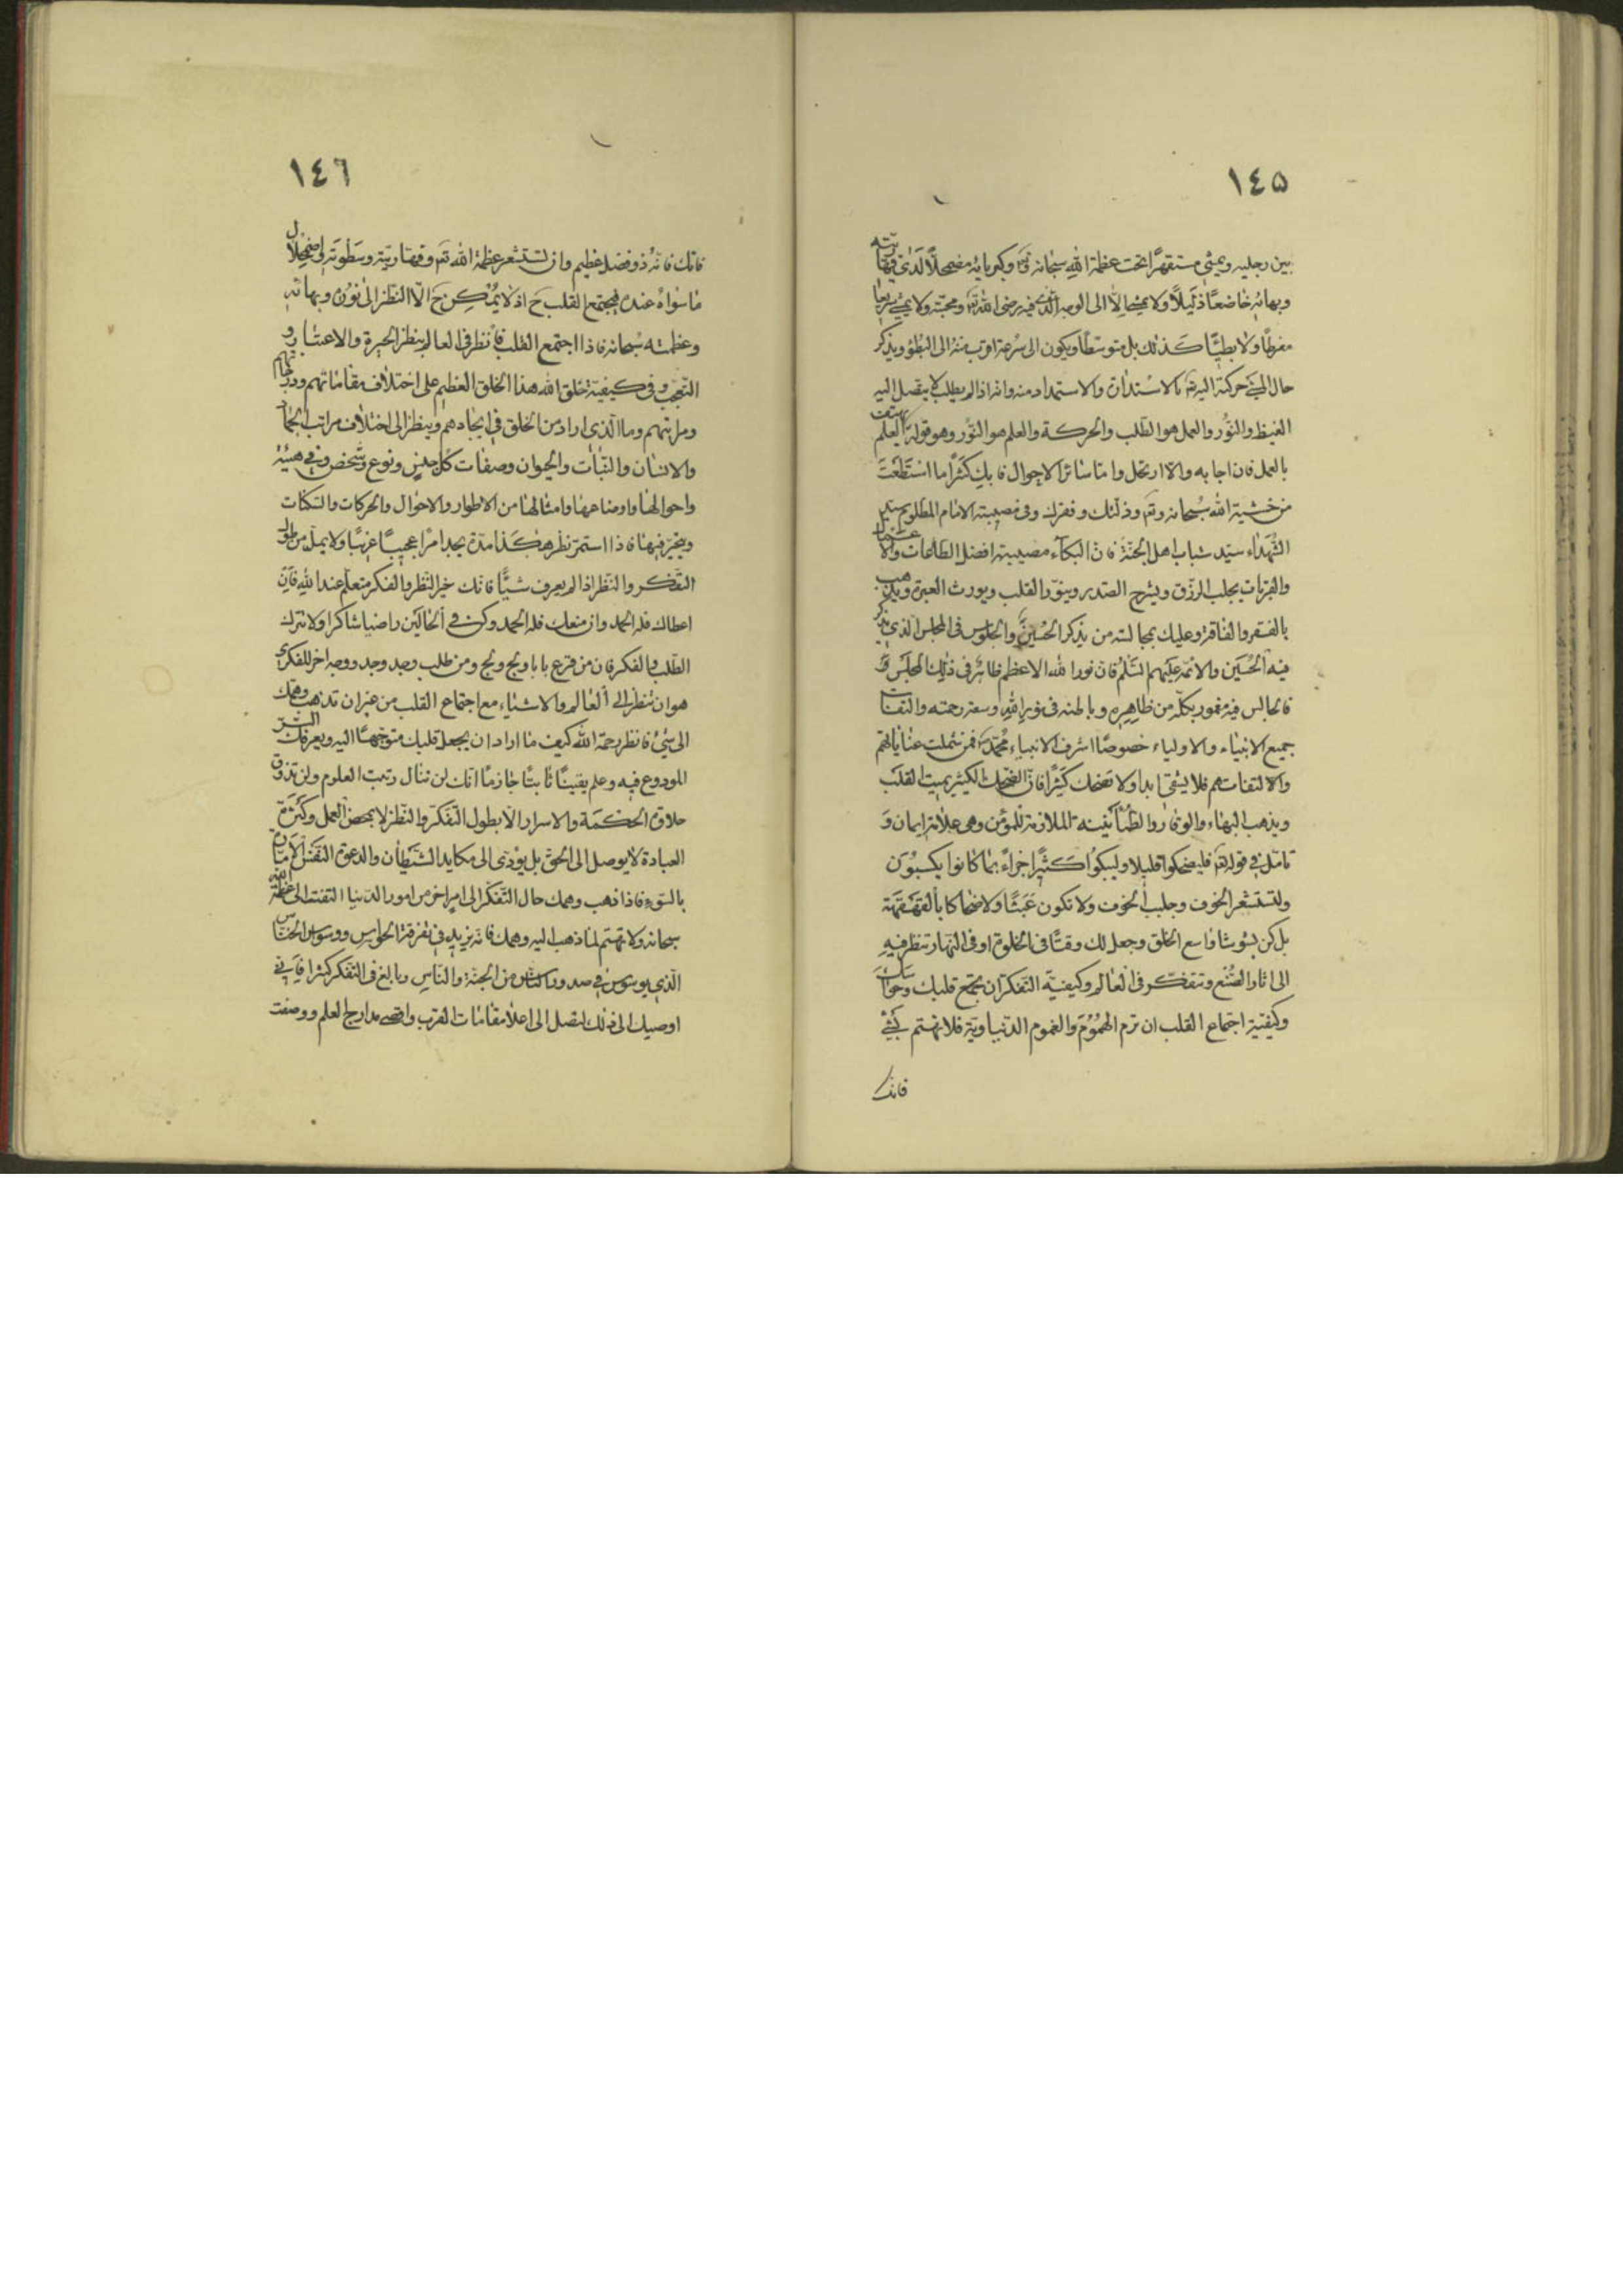 ١٤٥
بين رجليه ويمشي مستقهرًا تحت عظمة الله سبحانه وتع وكبريائه مضمحلًا لدى قهاريته
وبهائه خاضعًا ذليلًا ولا يمضي الا الى الوجه الذي فيه رضى الله تع ومحبته ولا يمشي سريعا
مفرطًا ولا بطيئًا كذلك بل متوسطًا ويكون الى سرعة اقرب منه الى البطؤ ويذكر
حال المشي حركته اليه تع بالاستدارة والاستمداد منه وانه اذا لم يطلب لا يتصل اليه
الفيض والنور والعمل هو الطلب والحركة والعلم هو النور وهو قوله العلم يهتف
بالعمل فان اجابه والا ارتحل واما سائر الاحوال فابك كثرًا ما استطعت
من خشية الله سبحانه وتع وذلتك وفقرك وفي مصيبة الامام المظلوم سيد
الشهداء سيد شباب اهل الجنة فان البكاء مصيبته افضل الطاعات والاعمال
والقربات يجلب الرزق ويشرح الصدر وينور القلب ويورث العبرة ويذهب
بالفقر والفاقة وعليك بمجالسته من يذكر الحسين والجلوس في المجلس الذي يذكر
فيه الحسين والائمة عليهم السلم فان نور الله الاعظم ظاهر في ذلك المجلس و
فالجالس فيه مغمور بكله من ظاهره وباطنه في نور الله وسعة رحمته والتفات
جميع الانبياء والاولياء خصوصًا اشرف الانبياء محمد فمن شملت عناياتهم
والالتفاتهم فلا يشقى ابدا ولا تضحك كثيرًا فان الضحك الكثير يميت القلب
ويذهب البهاء والوقار والطمأنينة الملازمة للمؤمن وهي علامة ايمان و
تامل في قوله تع فليضحكوا قليلا وليبكوا كثيرًا جزاءً بما كانوا يكسبون
ولتستشعر الخوف وجلب الخوف ولا تكون عبثًا ولا ضحاكا بالقهقهة
بل كن بشوشا واسع الخلق وجعل لك وقتًا في الخلوة او في النهار تنظر فيه
الى اثار الصنع وتتفكر في العالم وكيفية التفكر ان يجتمع قلبك وحواسك
وكيفية اجتماع القلب ان ترم الهموم والغموم الدنياوية فلا تهتم بشيء
فانك
١٤٦
فاتك فانه ذو فضل عظيم وان تستشعر عظمة الله تع وقهاريته وسطوته واضمحلال
ما سواه عنده ليجتمع القلب ح اذ لا يمكن ح الا النظر الى نوره وبهائه
وعظمته سبحانه فاذا اجتمع القلب فانظر في العالم بنظر الحيرة والاعتبار و
التعجب وفي كيفية خلق الله هذا الخلق العظيم على اختلاف مقاماتهم ودرجاتهم
ومراتبهم وما الذي اراد من الخلق في ايجادهم وينظر الى اختلاف مراتب الجماد
والانسان والنبات والحيوان وصفات كل جنس ونوع وشخص وفي هيئة
واحوالها واوضاعها وامثالها من الاطوار والاحوال والحركات والسكنات
ويتحير فيها فاذا استمر نظره هكذا مدة يجد امرًا عجيبًا غريبًا ولا يمل من طول
التفكر والنظر اذا لم يعرف شيئًا فانك خير النظر والفكر متعلم عند الله فان
اعطاك فله الحمد وان منعك فله الحمد وكن في الحالين راضيا شاكرا ولا تترك
الطلب والفكر فان من قرع بابا ولج ولج ومن طلب وجد وجد ووجه اخر للفكر
هو ان تنظر الى العالم والاشياء مع اجتماع القلب من غير ان تذهب وهمك
الى شيء فانظر رحمة الله كيف ما اراد ان يجعل قلبك متوجهًا اليه ويعرفك السر
المودوع فيه وعلم يقينًا ثابتًا جازمًا انك لن تنال رتبت العلوم ولن تذوق
حلاوة الحكمة والاسرار الا بطول التفكر والنظر لا بمحض العمل وكثرة
العبادة لا يوصل الى الحق بل يؤدى الى مكايد الشيطان والدعوة النفس الامارة
بالسوء فاذا ذهب وهمك حال التفكر الى امر اخر من امور الدنيا التفت الى عظمة الله
سبحانه ولا تهتم لما ذهب اليه وهمك فانه يزيد في تفرقة الحواس ووسوس الخناس
الذي يوسوس في صدور الناس من الجنة والناس وبالغ في التفكر كثيرا فاني
اوصيك الى ذلك لتصل الى اعلا مقامات القرب واقصى مدارج العلم ووصفت